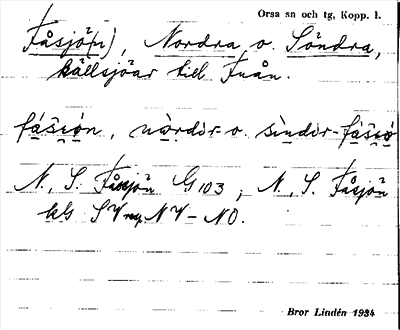 Orsa sn och tg, Kopp. l.
Fåsjö(n), Nordra o. Söndra,
källsjöar till Fuån.
fá̀s̯i̯ó̤n, nò̤rdịr- o. sìndịr-fá̀s̯i̯ó̤
N., S. Fåsjön G 103; N., S. Fåsjön
kls SV NV–NO.
Bror Lindén 1934